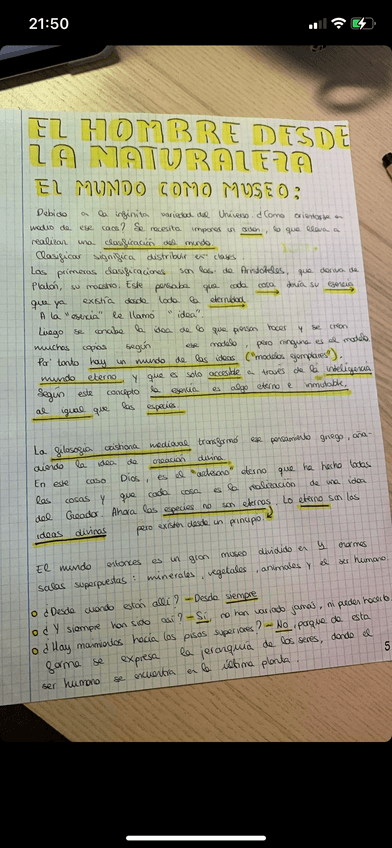 21:50
EL HOMBRE DESDE
LA NATURALEZA
EL MUNDO COMO MUSEO:
Debido a la infinita variedad del Universo. ¿Como orientarse en
medio de ese caos? Se necesita imponer un orden, lo que lleva a
realizar una clasificación del mundo.
Clasificar significa distribuir en clases
Las primeras clasificaciones son las de Aristóteles, que deriva de
Platón, su maestro. Este pensaba que cada cosa tenía su esencia
que ya existía desde toda la eternidad.
A la "esencia" le llamo "idea".
Luego se concibe la idea de lo que piensan hacer y se crean
muchas copias según ese modelo, pero ninguna es el modelo.
Por tanto hay un mundo de las ideas ("modelos ejemplares"),
mundo eterno y que es solo accesible a través de la inteligencia
Según este concepto la esencia es algo eterno e inmutable,
al igual que las especies.
La filosofía cristiana medieval transformó ese pensamiento griego, aña-
diendo la idea de creación divina.
En este caso Dios, es el "artesano" eterno que ha hecho todas
las cosas y que cada cosa es la realización de una idea
del Creador. Ahora las especies no son eternas. Lo eterno son las
ideas divinas pero existen desde un principio.
El mundo entonces es un gran museo dividido en 4 enormes
salas superpuestas: minerales, vegetales, animales y el ser humano.
¿Desde cuando están allí? - Desde siempre
¿Y siempre han sido así? - Sí, no han variado jamás, ni pueden hacerlo.
¿Hay movimientos hacia los pisos superiores? - No, porque de esta
forma se expresa la jerarquía de los seres, donde el
ser humano se encuentra en la última planta.
5